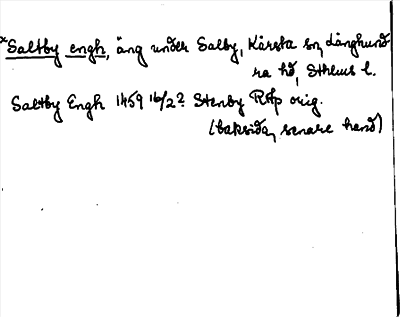 *Saltby engh, äng under Salby, Kårsta sn, Långhund
ra hd, Sthlms l.
Saltby Engh 1459 16/2? Stenby RAp orig.
(baksida, senare hand)